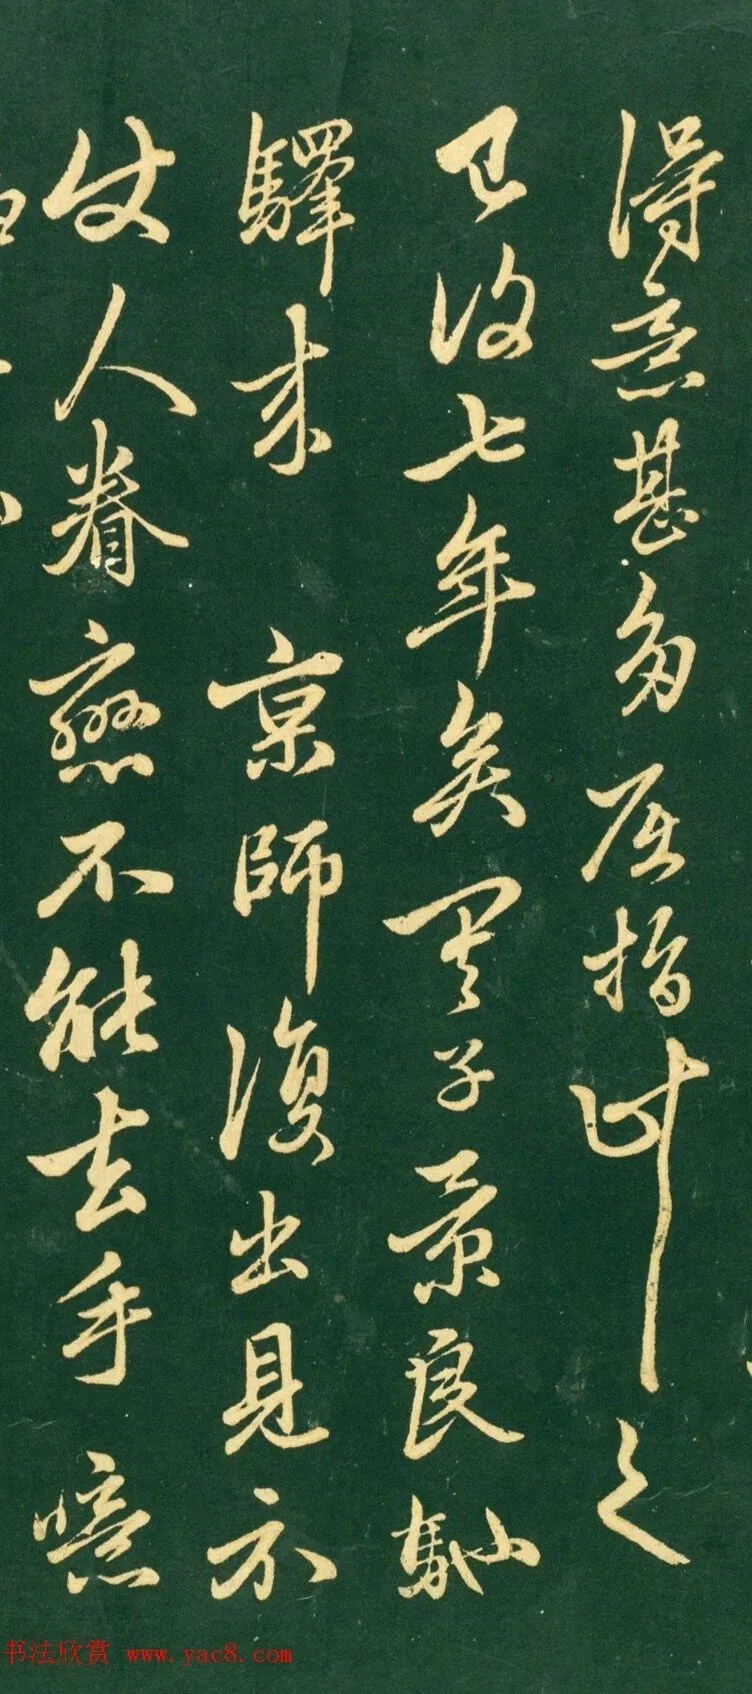 得意甚多屈指計之
已后七年矣嗣子景良馳
驛来京師復出見示
伏人眷戀不能去手噫
书法欣赏 www.yac8.com